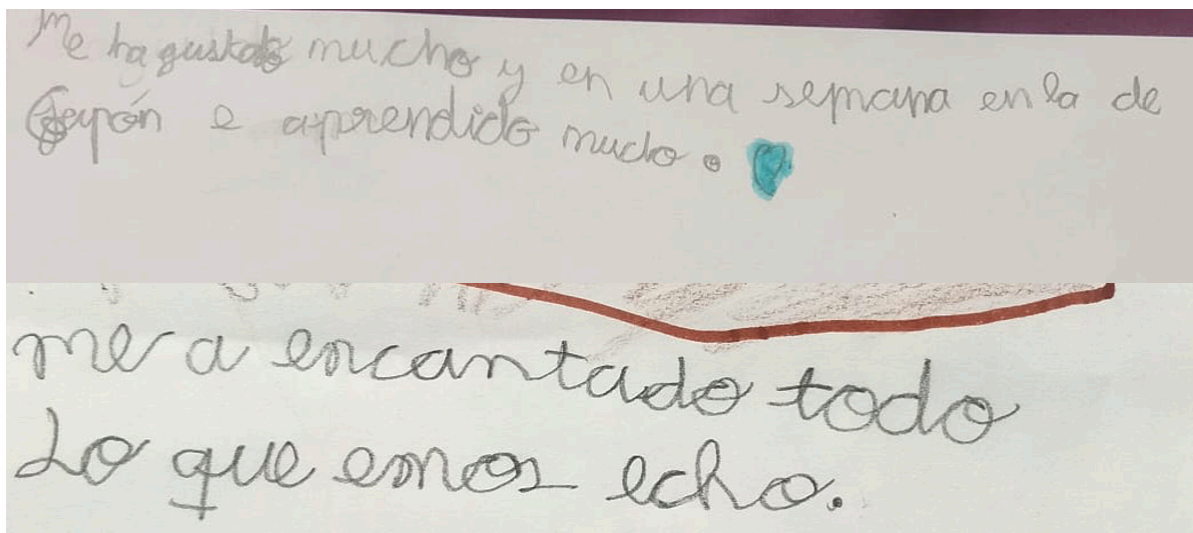 Me ha gustado mucho y en una semana en la de
Japón e aprendido mucho.
me a encantado todo
Lo que emos echo.